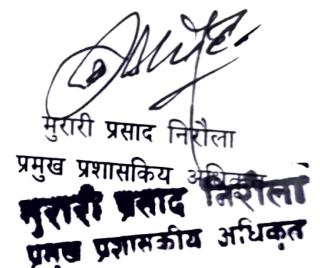 मुरारी प्रसाद निरौला
प्रमुख प्रशासकिय अधिकृत
मुरारी प्रसाद निरौला
प्रमुख प्रशासकीय अधिकृत